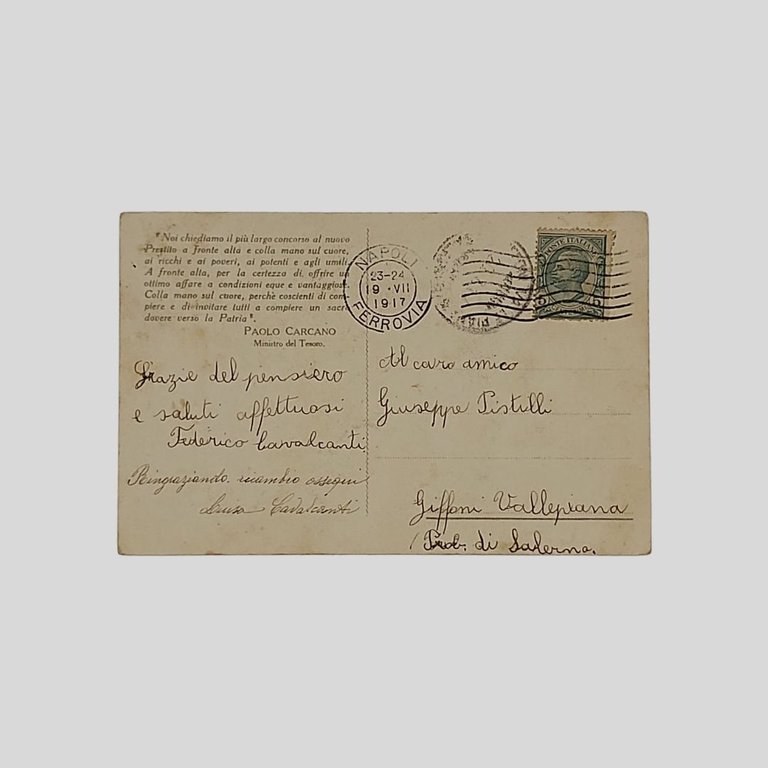 "Noi chiediamo il più largo concorso al nuovo
Prestito a fronte alta e colla mano sul cuore,
ai ricchi e ai poveri, ai potenti e agli umili.
A fronte alta, per la certezza di offrire un
ottimo affare a condizioni eque e vantaggiose.
Colla mano sul cuore, perchè coscienti di com-
piere e di invitare tutti a compiere un sacro
dovere verso la Patria".
PAOLO CARCANO
Ministro del Tesoro.
NAPOLI
23-24
19 · VII
1917
FERROVIA
POSTE ITALIANE
Grazie del pensiero
e saluti affettuosi
Federico Cavalcanti
Ringraziando ricambio ossequi
Luisa Cavalcanti
Al caro amico
Giuseppe Pistilli
Giffoni Vallepiana
Prov. di Salerno.